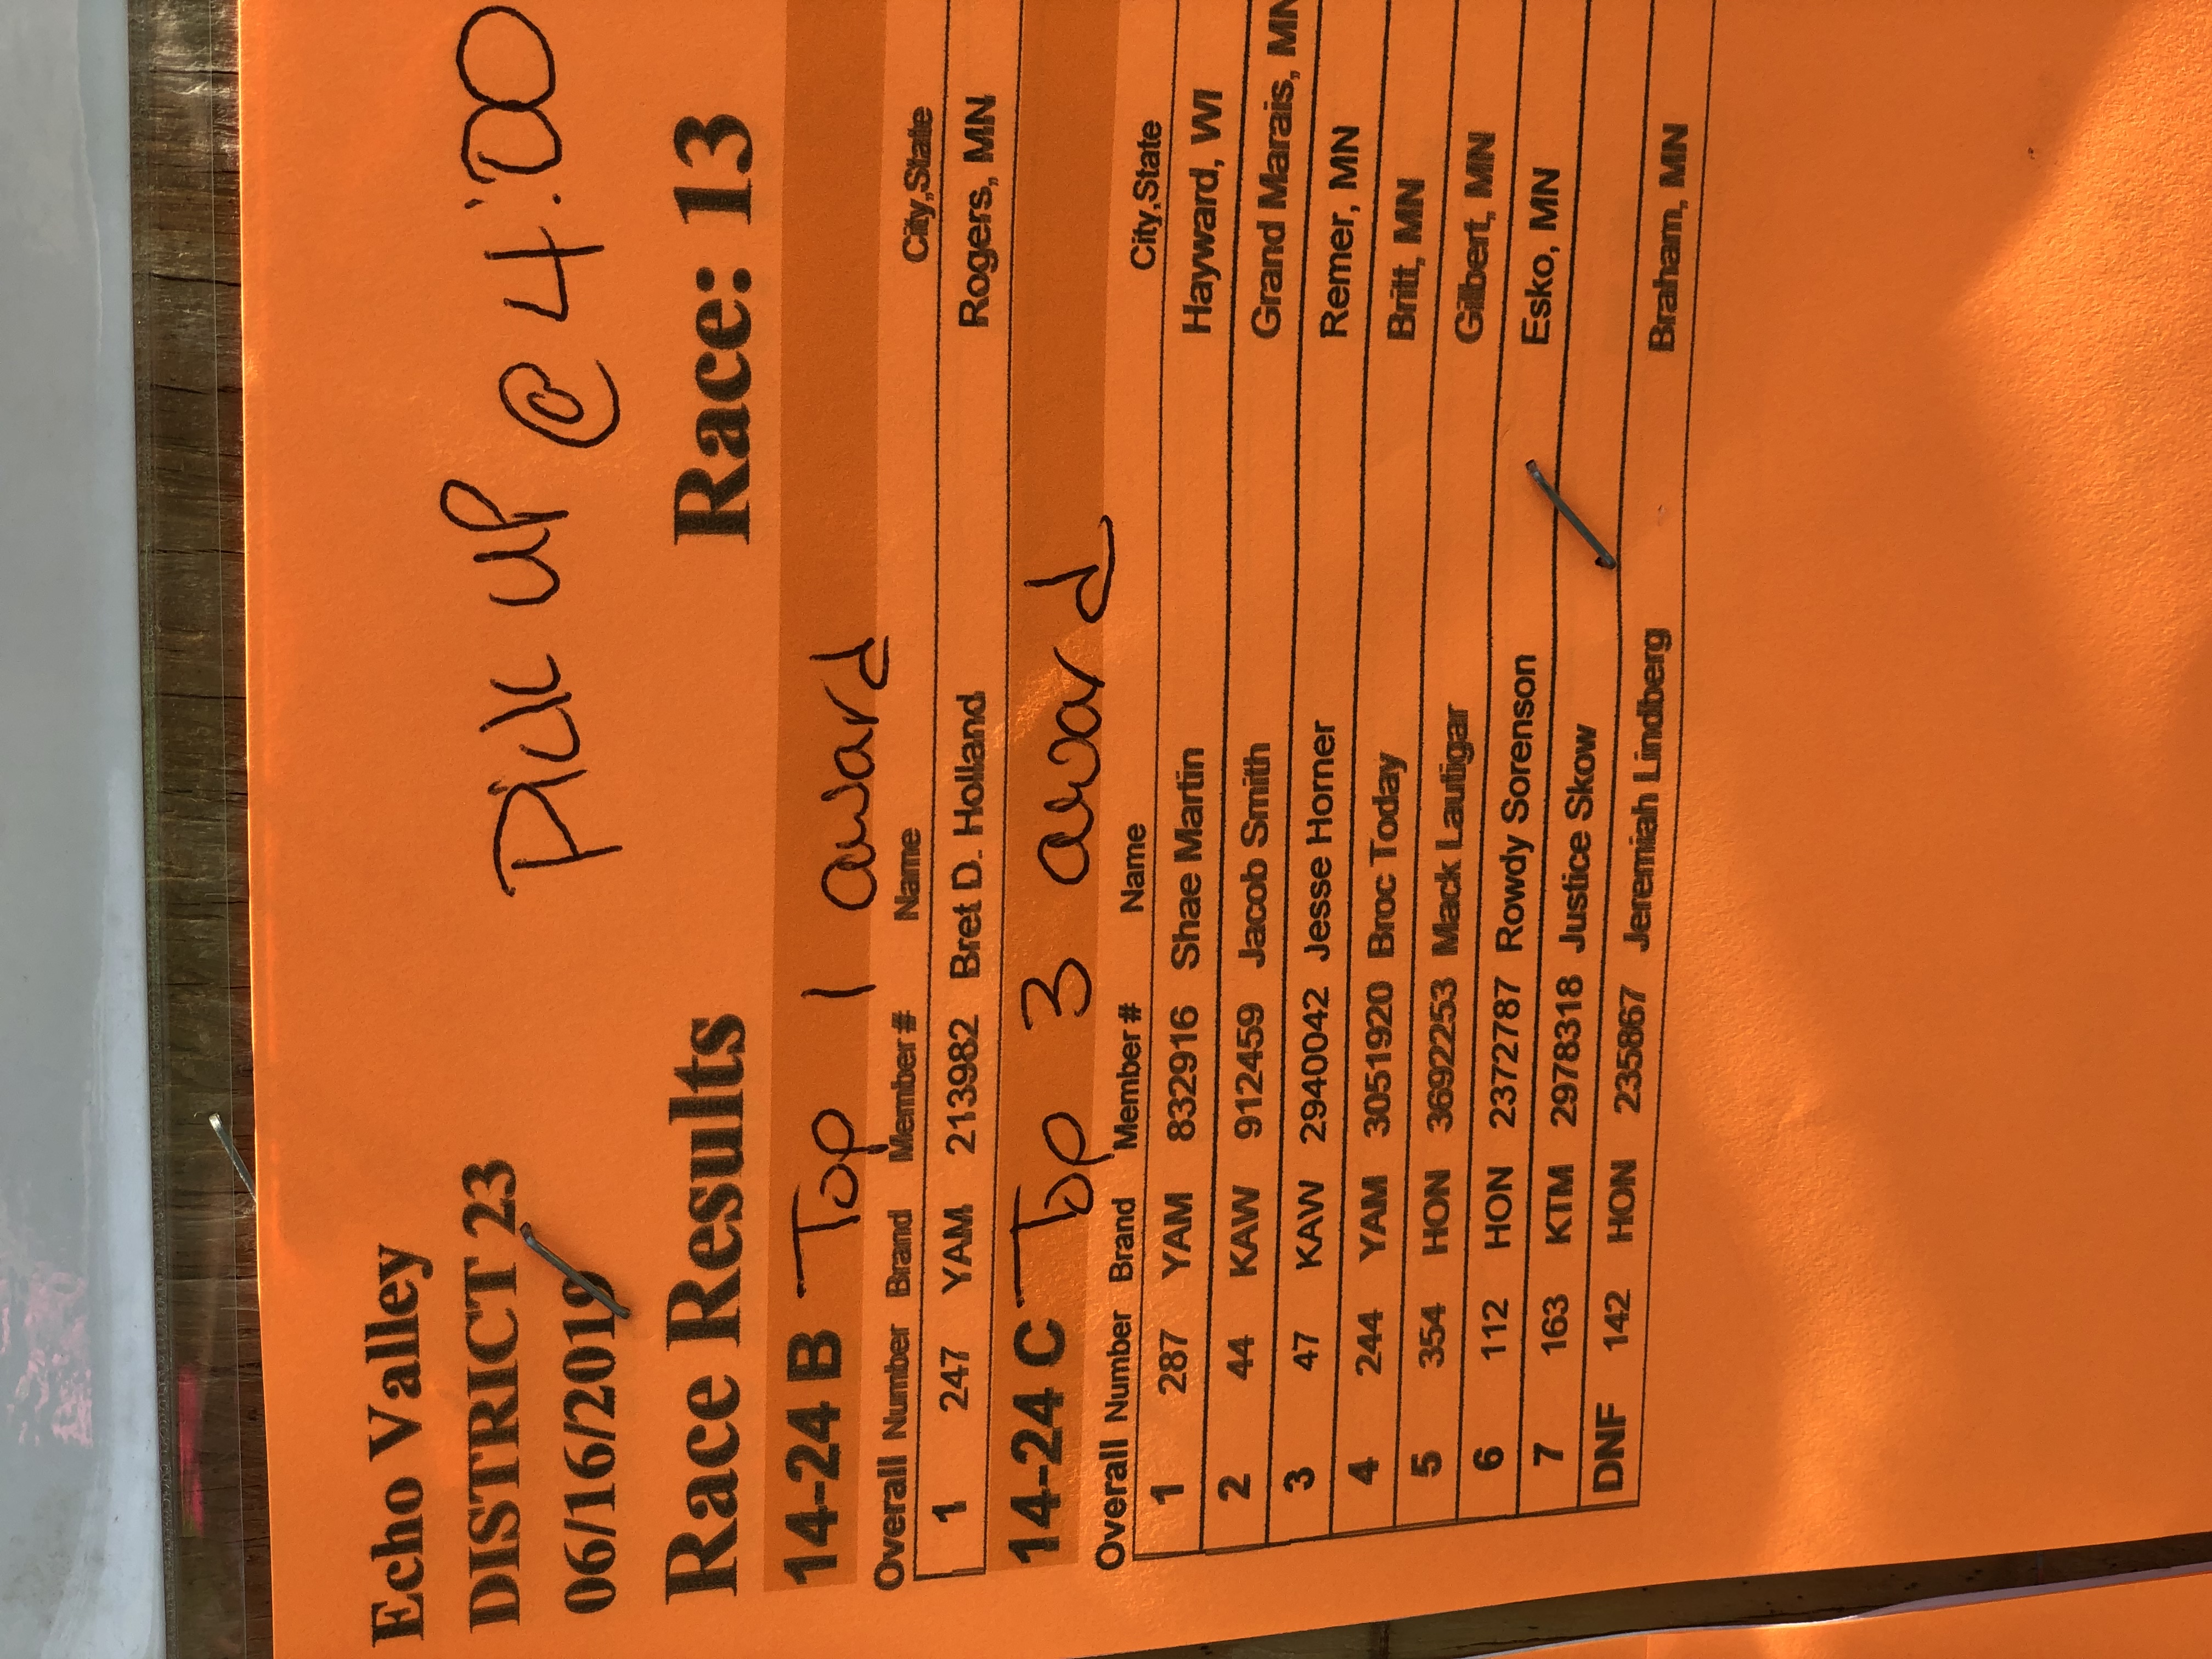 Echo Valley
DISTRICT 23 Pick up @ 4:00
06/16/2019
Race Results Race: 13
14-24 B Top 1 award
Overall Number Brand Member # Name City,State
1 247 YAM 213982 Bret D. Holland Rogers, MN
14-24 C Top 3 award
Overall Number Brand Member # Name City,State
1 287 YAM 832916 Shae Martin Hayward, WI
2 44 KAW 912459 Jacob Smith Grand Marais, MN
3 47 KAW 2940042 Jesse Horner Remer, MN
4 244 YAM 3051920 Broc Today Britt, MN
5 354 HON 3692253 Mack Lautigar Gilbert, MN
6 112 HON 2372787 Rowdy Sorenson Esko, MN
7 163 KTM 2978318 Justice Skow
DNF 142 HON 235867 Jeremiah Lindberg Braham, MN